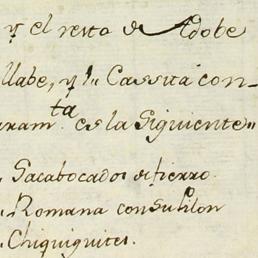 y el resto de Adobe
llabe, y 1„ Cassita con-
ta
aram. es la Siguiente„
Sacabocados de fierro.
Romana con su Pilon
Chiquiguites.